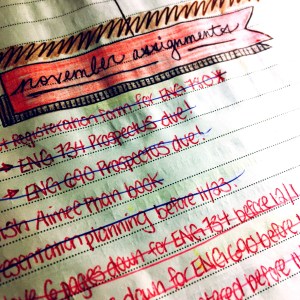 november assignments
Registeration form for ENG 780*
ENG 734 Prospectus due!
ENG 600 Prospectus due!
Aimee Man book
planning before 11/23.
6 pages down for ENG 734 before 12/1
down for ENG 600 before
before